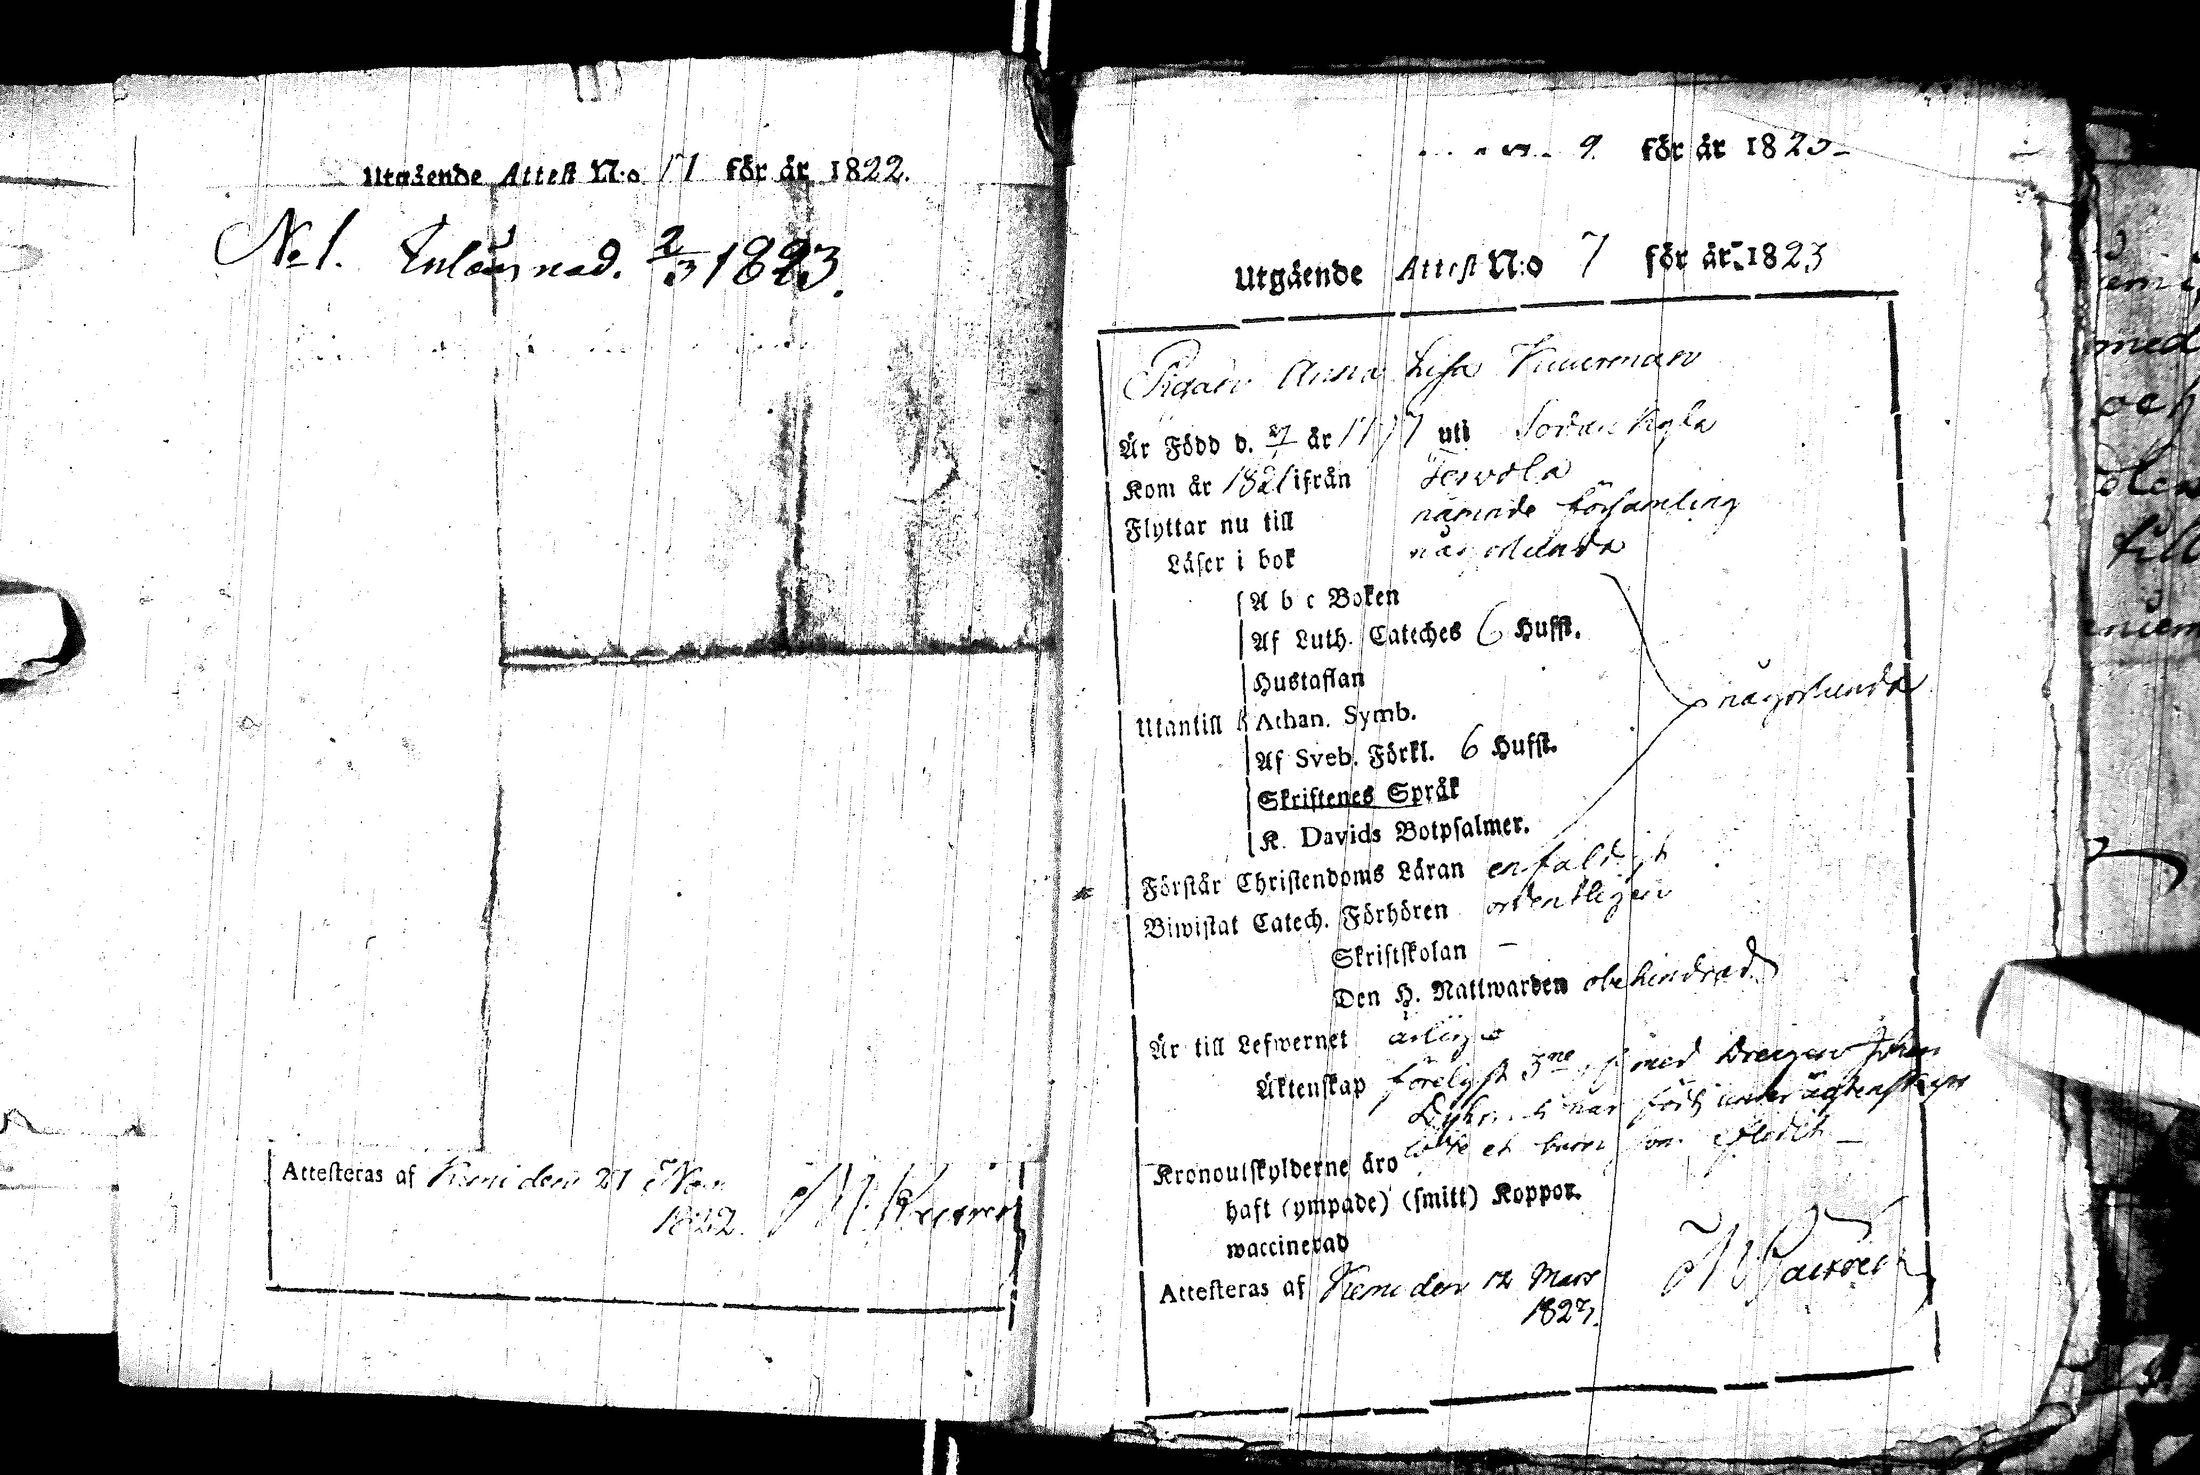 Utgående Attest N:o 17 för år 1822.
No 1. Inlämnad. 2/3 1823.
Attesteras af Kemi den 21 Nov.
1822. M Kurren
9. för år 1823
Utgående Attest N:o 7 för år 1823
Pigan Anna Lisa
Är Född d. år 1777 uti Sodankyla
Kom år 1821 ifrån Tervola
Flyttar nu till nämnde församling
Läser i bok någorlunda
A b c Boken
Af Luth. Cateches 6 Hufst.
Hustaflan
någorlunda
Utantill Athan. Symb.
Af Sveb. Förkl. 6 Hufst.
Skriftenes Språk
K. Davids Botpsalmer.
Förstår Christendoms Läran enfaldigt
Biwistat Catech. Förhören ordentligen
Skriftskolan –
Den H. Nattwarden obehindrad
Är till Lefwernet ärlig
Äktenskap förelyst 3ne med Drengen Johan
har född under ägtenskaps
löfte et barn
Kronoutskylderne äro
haft (ympade) (smitt) Koppor.
waccinerad
Attesteras af Kemi den 12 Mars
1823.
med
och
den
till